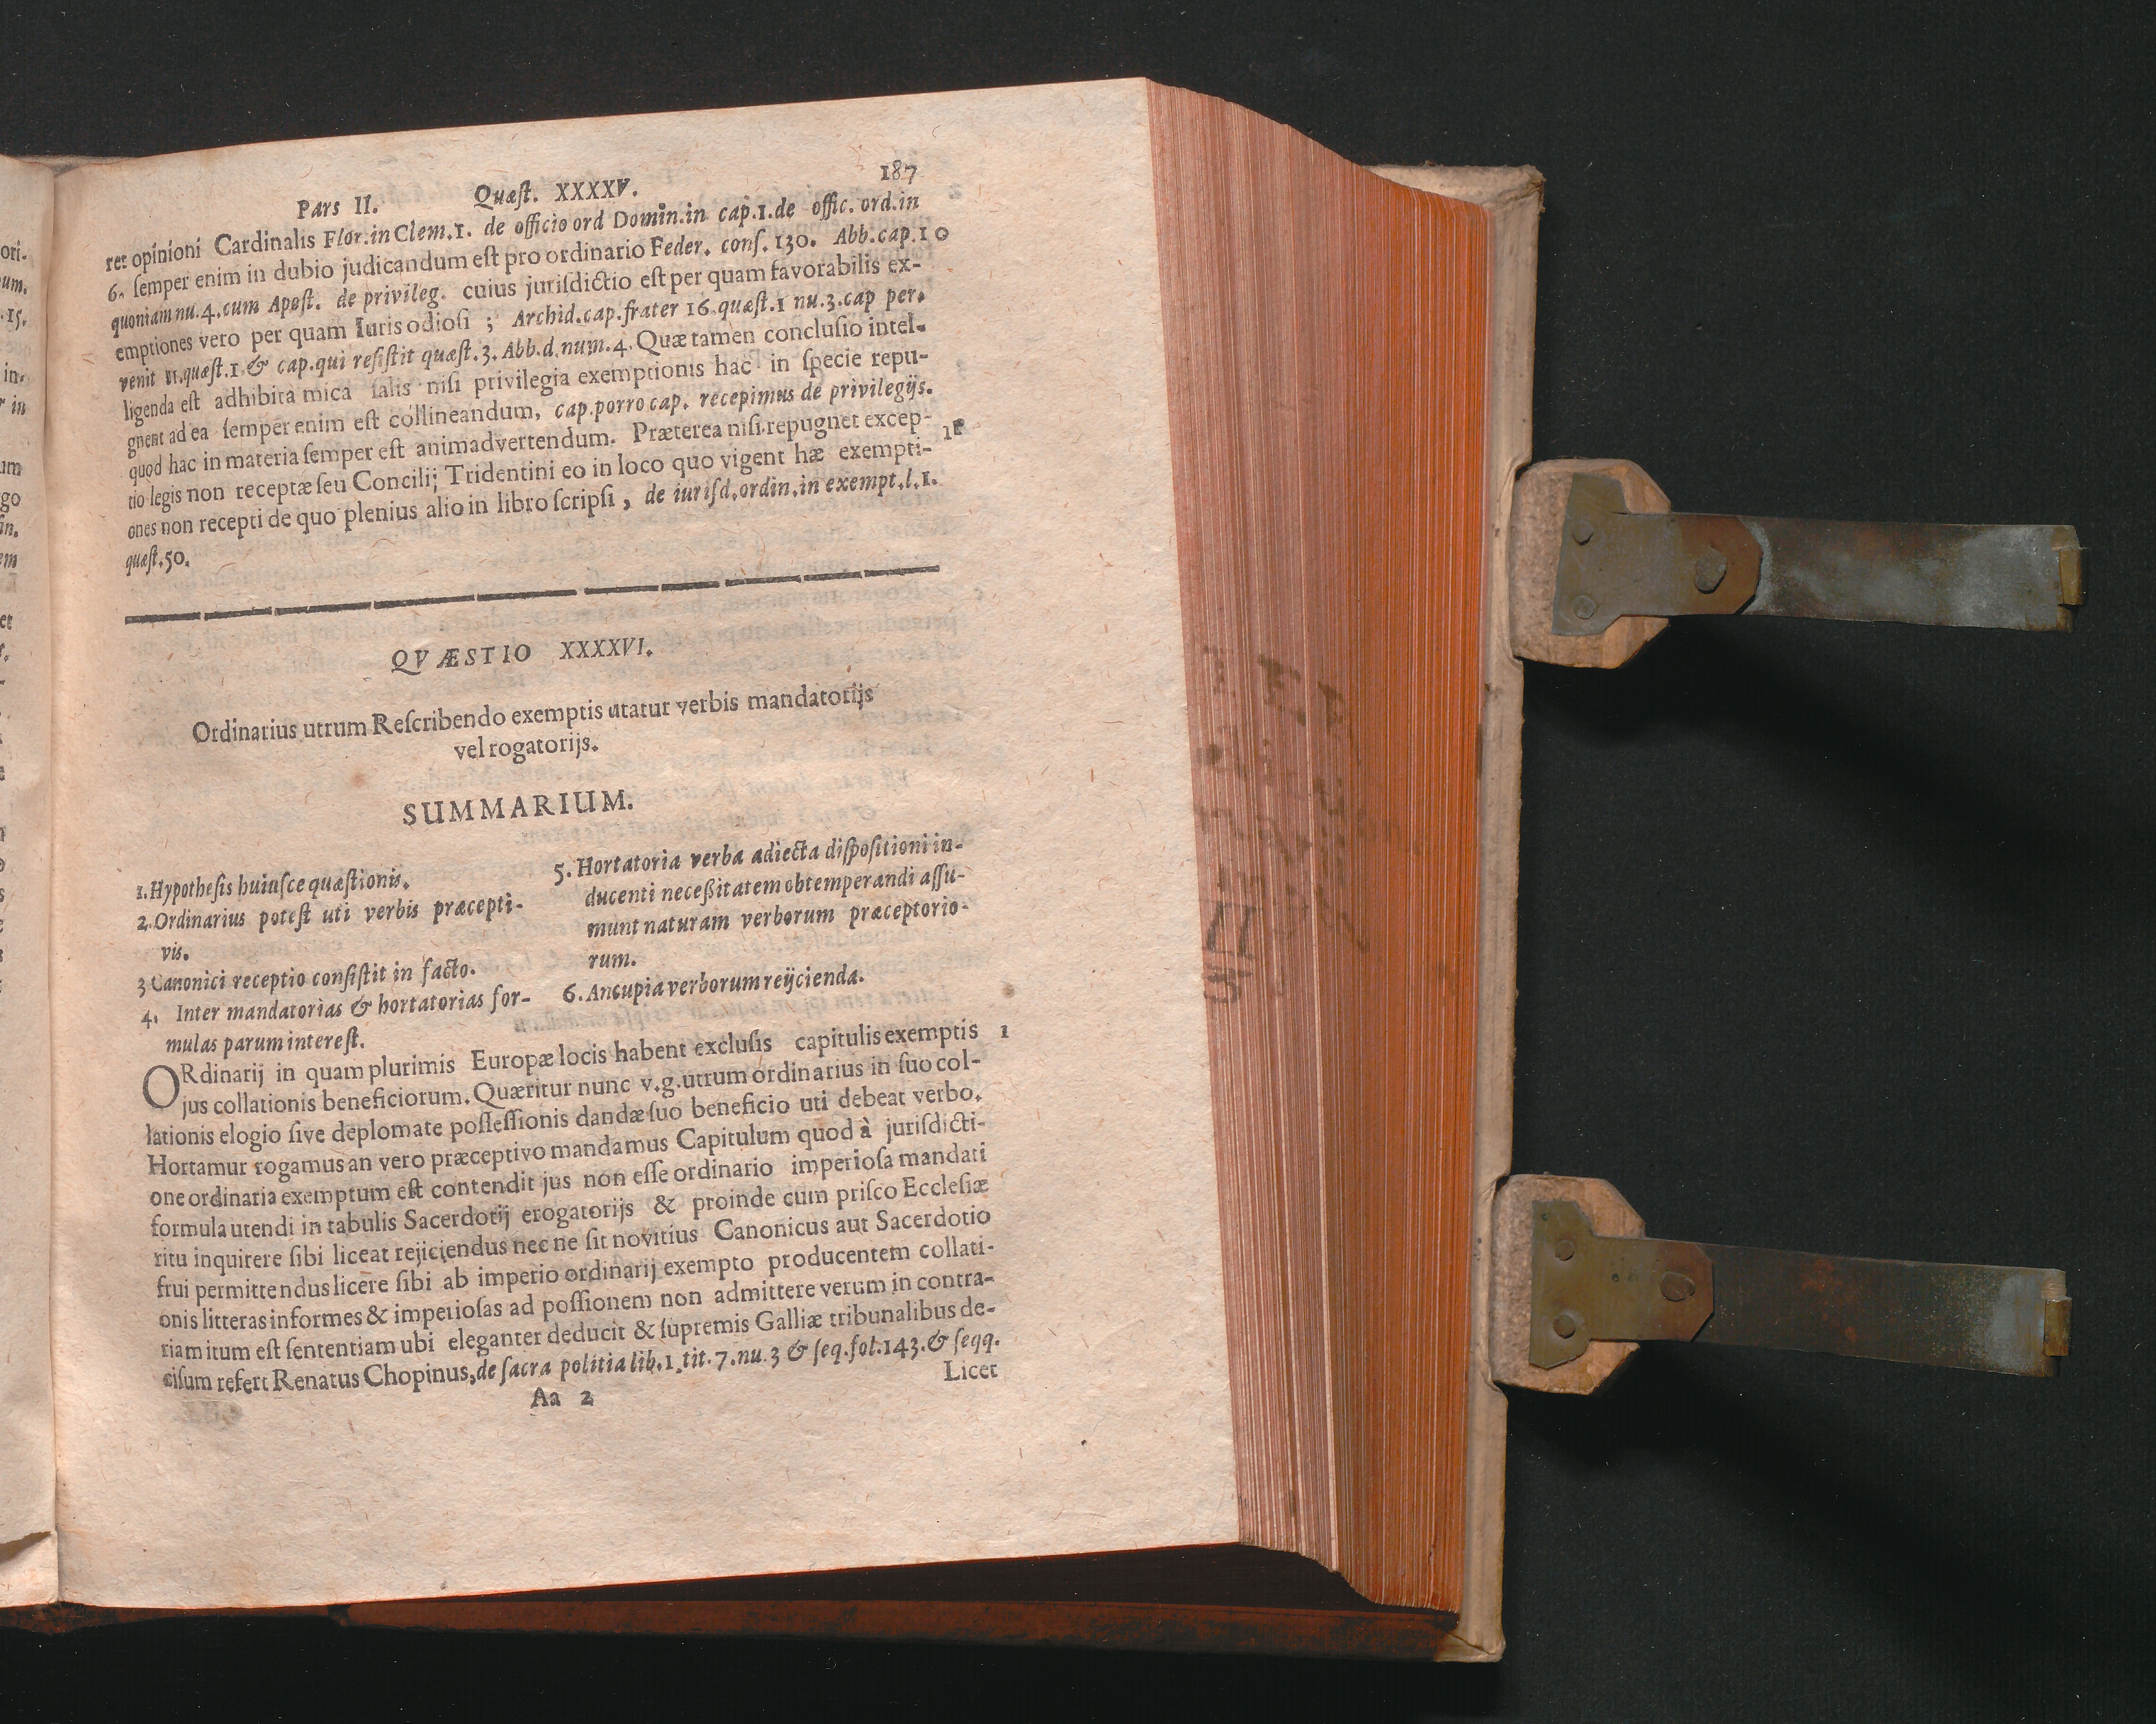 Pars II. Quæſt. XXXXV. 187
ret opinioni Cardinalis Flor.in Clem.1. de officio ord Domin.in cap.1.de offic. ord.in
6. ſemper enim in dubio judicandum eſt pro ordinario Feder. conſ. 130. Abb.cap.10
quoniam nu.4.cum Apoſt. de privileg. cuius juriſdictio eſt per quam favorabilis ex-
emptiones vero per quam Iuris odioſi ; Archid.cap.frater 16.quæſt.1 nu.3.cap per.
venit 11.quæſt.1.& cap.qui reſiſtit quæſt.3. Abb.d.num.4. Quæ tamen concluſio intel-
ligenda eſt adhibita mica ſalis niſi privilegia exemptionis hac in ſpecie repu-
gnent ad ea ſemper enim eſt collineandum, cap.porro cap. recepimus de privilegijs.
quod hac in materia ſemper eſt animadvertendum. Præterea niſi repugnet excep- 11
tio legis non receptæ ſeu Concilij Tridentini eo in loco quo vigent hæ exempti-
ones non recepti de quo plenius alio in libro ſcripſi , de iuriſd.ordin.in exempt.l.1.
quæſt.50.
QVÆSTIO XXXXVI.
Ordinarius utrum Reſcribendo exemptis utatur verbis mandatorijs
vel rogatorijs.
SUMMARIUM.
1.Hypotheſis huiuſce quæſtionis.
2.Ordinarius poteſt uti verbis præcepti-
vis.
3 Canonici receptio conſiſtit in facto.
4. Inter mandatorias & hortatorias for-
mulas parum intereſt.
5. Hortatoria verba adiecta diſpoſitioni in-
ducenti neceßitatem obtemperandi aſſu-
munt naturam verborum præceptorio-
rum.
6. Ancupia verborum reijcienda.
ORdinarij in quam plurimis Europæ locis habent excluſis capitulis exemptis 1
jus collationis beneficiorum. Quæritur nunc v.g.utrum ordinarius in ſuo col-
lationis elogio ſive deplomate poſſeſſionis dandæ ſuo beneficio uti debeat verbo.
Hortamur rogamus an vero præceptivo mandamus Capitulum quod à juriſdicti-
one ordinaria exemptum eſt contendit jus non eſſe ordinario imperioſa mandati
formula utendi in tabulis Sacerdotij erogatorijs & proinde cum priſco Eccleſiæ
ritu inquirere ſibi liceat rejiciendus nec ne ſit novitius Canonicus aut Sacerdotio
frui permittendus licere ſibi ab imperio ordinarij exempto producentem collati-
onis litteras informes & imperioſas ad poſſionem non admittere verum in contra-
riam itum eſt ſententiam ubi eleganter deducit & ſupremis Galliæ tribunalibus de-
ciſum refert Renatus Chopinus, de ſacra politia lib.1.tit.7.nu.3 & ſeq.fol.143.& ſeqq.
Aa 2 Licet